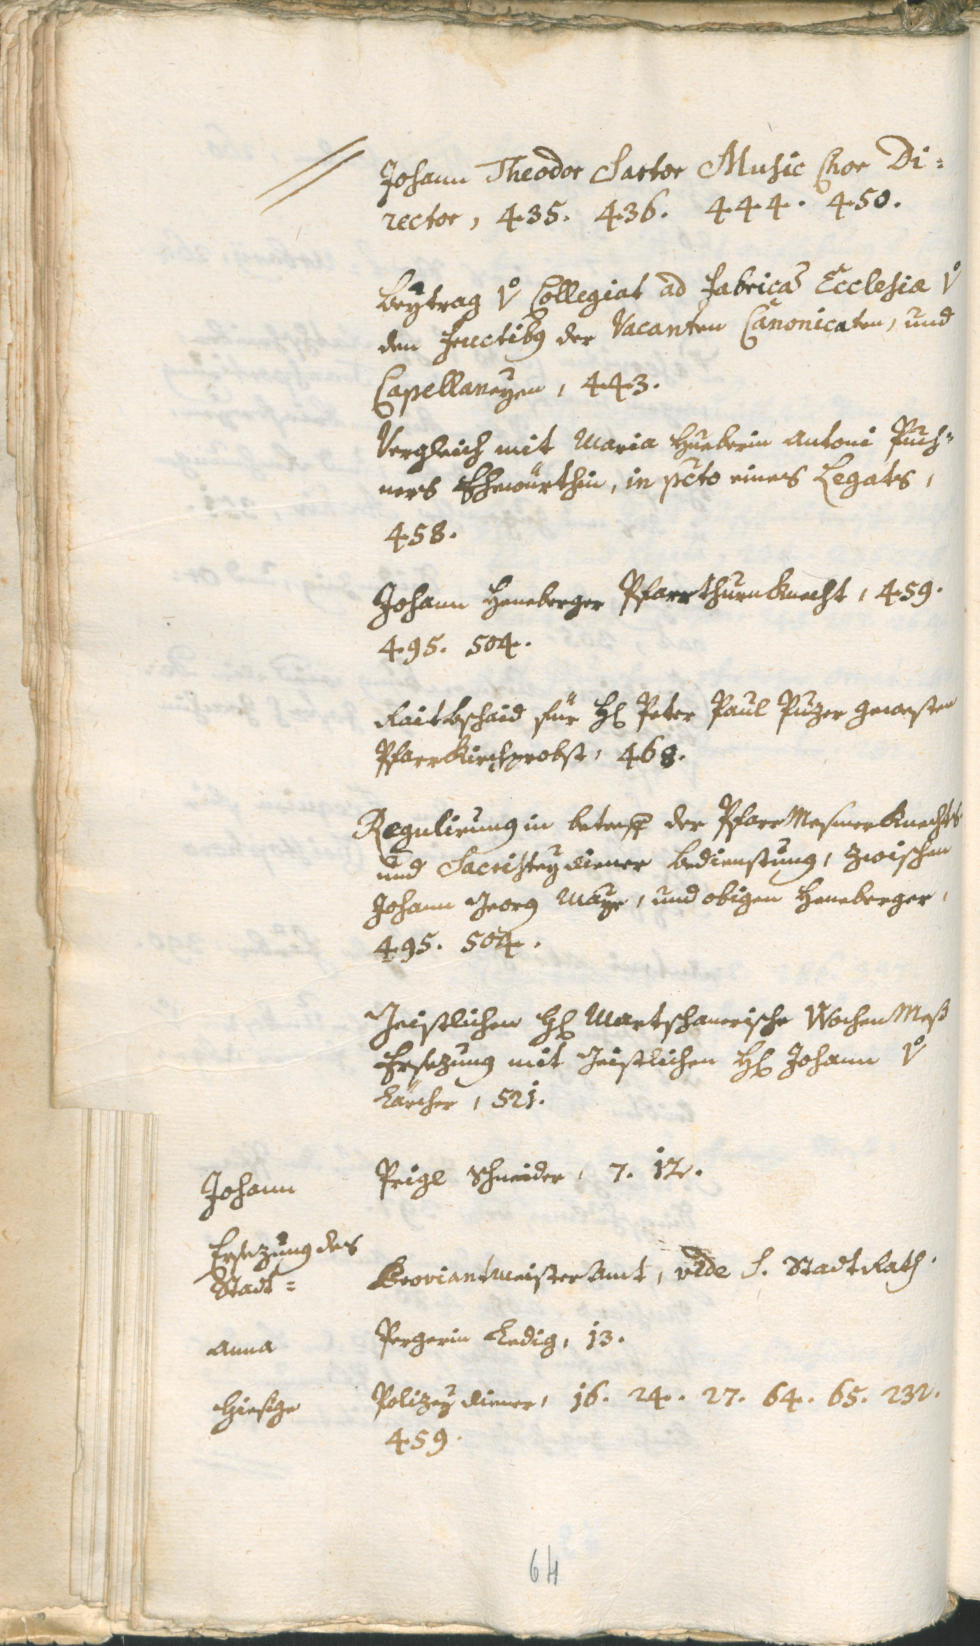 Johann Theodor Sartor Music Chor Di=
rector, 435. 436. 444. 450.
Beÿtrag Vº Collegiat ad fabricã Ecclesiæ Vº
den fructibq der Vacanten Canonicaten, und
Capellaneÿen, 443.
Vergleich mit Maria Hueberin Antoni Puech=
ners Ehewürthin, in pcto eines Legats,
458.
Johann Heneberger Pfarrthurn Knecht, 459.
495. 504.
Raitbschaid für H: Peter Paul Puzer gewesten
Pfarr Kirchprobst, 468.
Regulirung in betreff der Pfarr Messner Knechts
und Sacristeÿ diener bedienstung, zwischen
Johann Georg Maÿr, und obigen Heneberger,
495. 504.
Geistlichen H: Martschanerische Wochen Mess
Ersezung mit Geistlichen H: Johann Vº
Lärcher, 521.
Johann Prigl Schneider, 7. 12.
Ersezung des
Stadt= Proviantmeister Amt, vide S. Stadt Rath.
Anna Pergerin Ledig, 13.
Hiesige Polizeÿ diener, 16. 24. 27. 64. 65. 232.
459.
64